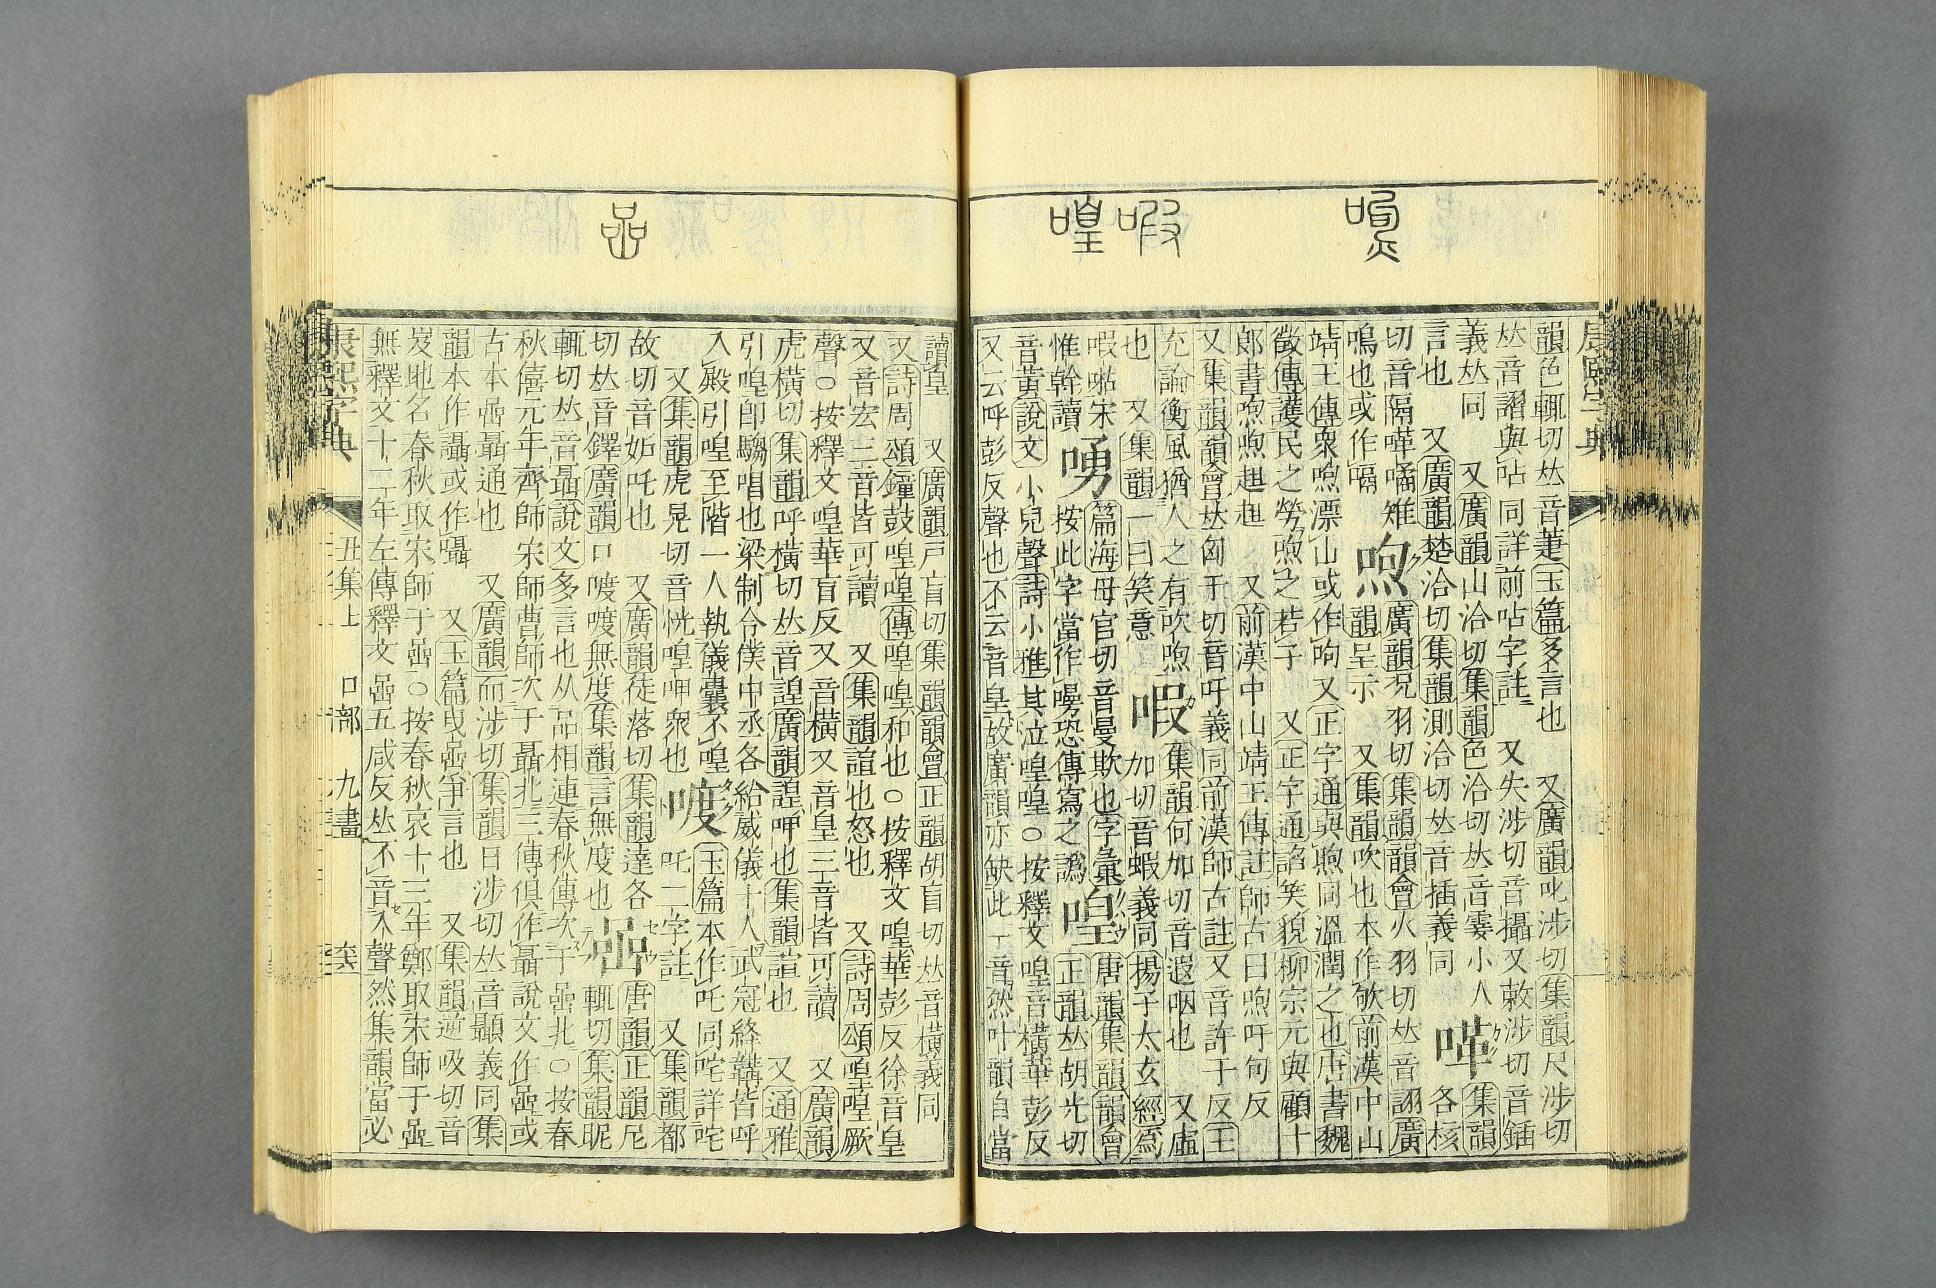 喣
㗇
喤
喦
康熙字典
韻色輒切𠀤音萐玉篇多言也　又廣韻叱涉切集韻尺涉切
𠀤音謵與呫同詳前呫字註　又失涉切音攝又敕涉切音鍤
義𠀤同　又廣韻山洽切集韻色洽切𠀤音霎小人　㗆　集韻
言也　又廣韻楚洽切集韻測洽切𠀤音插義同　各核
切音隔㗆噊雉　喣　廣韻況羽切集韻韻會火羽切𠀤音詡廣
鳴也或作嗝　韻呈示　又集韻吹也本作欨前漢中山
靖王傳衆喣漂山或作呴又正字通與煦同溫潤之也唐書魏
徵傳護民之勞喣之若子　又正字通諂笑貌柳宗元與顧十
郎書喣喣趄趄　又前漢中山靖王傳註師古曰喣吁句反
又集韻韻會𠀤匈于切音吁義同前漢師古註又音許于反王
充論衡風猶人之有吹喣　㗇　集韻何加切音遐咽也　又虛
也　又集韻一曰笑意　加切音蝦義同揚子太玄經爲
㗇㗘宋　㗃　篇海母官切音曼欺也字彙　喤　唐韻集韻韻會
惟幹讀　按此字當作嘪恐傳寫之譌　正韻𠀤胡光切
音黃說文小兒聲詩小雅其泣喤喤○按釋文喤音橫華彭反
又云呼彭反聲也不云音皇故廣韻亦缺此一音然叶韻自當
讀皇　又廣韻戸盲切集韻韻會正韻胡盲切𠀤音橫義同
又詩周頌鐘鼓喤喤傳喤喤和也○按釋文喤華彭反徐音皇
又音宏三音皆可讀　又集韻諠也怒也　又詩周頌喤喤厥
聲○按釋文喤華盲反又音橫又音皇三音皆可讀　又廣韻
虎橫切集韻呼橫切𠀤音諻廣韻諻呷也集韻諠也　又通雅
引喤卽騶唱也梁制令僕中丞各給威儀十人武冠絳韝皆呼
入殿引喤至階一人執儀囊不喤　喥　玉篇本作吒同咤詳咤
又集韻虎晃切音恍喤呷衆也　吒二字註　又集韻都
故切音妬吒也　又廣韻徒落切集韻達各　喦　唐韻正韻尼
切𠀤音鐸廣韻口喥喥無度集韻言無度也　輒切集韻昵
輒切𠀤音聶說文多言也从品相連春秋傳次于喦北○按春
秋僖元年齊師宋師曹師次于聶北三傳俱作聶說文作喦或
古本喦聶通也　又廣韻而涉切集韻日涉切𠀤音顳義同集
韻本作讘或作囁　又玉篇㕟喦爭言也　又集韻逆吸切音
岌地名春秋取宋師于喦○按春秋哀十三年鄭取宋師于喦
無釋文十二年左傳釋文喦五咸反𠀤不音入聲然集韻當必
康熙字典　丑集上　口部　九畫